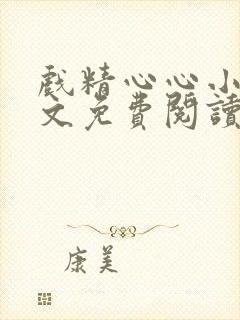 戲精心心小
文免費閱讀
康美